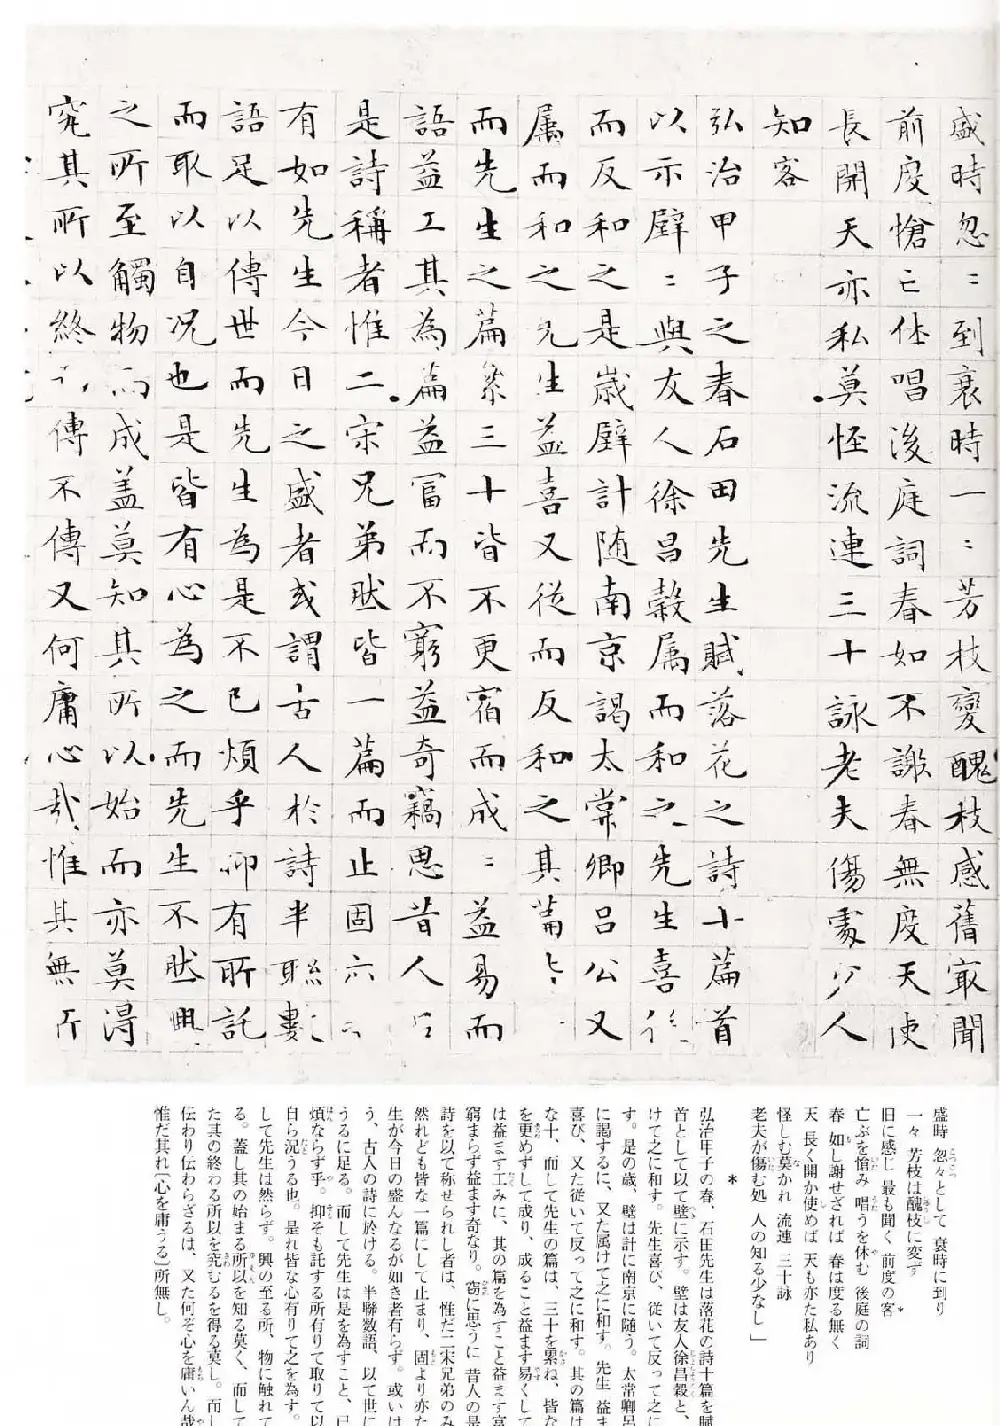 盛時忽〻到衰時一〻芳枝變醜枝感舊㝡聞
前度愴亡休唱後庭詞春如不謝春無度天使
長開天亦私莫怪流連三十詠老夫傷處少人
知客
弘治甲子之春石田先生賦落花之詩十篇首
以示璧〻與友人徐昌穀属而和之先生喜從
而反和之是歲璧計随南京謁太常卿呂公又
属而和之先生益喜又從而反和之其篇
而先生之篇絫三十皆不更宿而成〻益易而
語益工其為篇益冨而不窮益奇竊思昔人
是詩稱者惟二宋兄弟然皆一篇而止固六
有如先生今日之盛者或謂古人於詩半聮數
語足以傳世而先生為是不已煩乎抑有所託
而取以自况也是皆有心為之而先生不然興
之所至觸物而成盖莫知其所以始而亦莫得
究其所以終 傳不傳又何庸心哉惟其無所
盛時 忽々として 衰時に到り
一々 芳枝は醜枝に変ず
旧に感じ 最も聞く 前度の客*
亡ぶを愴み 唱うを休む 後庭の詞
春 如し謝せざれば 春は度る無く
天 長く開か使めば 天も亦た私あり
怪しむ莫かれ 流連 三十詠
老夫が傷む処 人の知る少なし」
*
弘治甲子の春、石田先生は落花の詩十篇を賦
首として以て璧に示す。璧は友人徐昌穀と、
けて之に和す。先生喜び、従いて反って之に
す。是の歳、璧は計に南京に随う。太常卿呂
に謁するに、又た属けて之に和す。先生 益ま
喜び、又た従いて反って之に和す。其の篇は
な十、而して先生の篇は、三十を累ね、皆な
を更めずして成り、成ること益ます易くして
は益ます工みに、其の篇を為すこと益ます富
窮まらず益ます奇なり。窃に思うに 昔人の是
詩を以て称せられし者は、惟だ二宋兄弟のみ
然れども皆な一篇にして止まり、固より亦た
生が今日の盛んなるが如き者有らず。或いは
う、古人の詩に於ける。半聯数語、以て世に
うるに足る。而して先生は是を為すこと、已
煩ならず乎。抑そも託する所有りて取りて以
自ら況うる也。是れ皆な心有りて之を為す。
して先生は然らず。興の至る所、物に触れて
る。蓋し其の始まる所以を知る莫く、而して
た其の終わる所以を究むるを得る莫し。而し
伝わり伝わらざるは、又た何ぞ心を庸いん哉
惟だ其れ〔心を庸うる〕所無し。